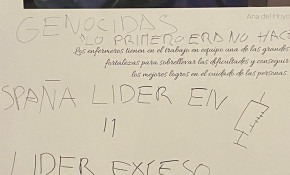 Ana del Hoyo
GENOCIDAS
"LO PRIMERO ERA NO HAC
Los enfermeros tienen en el trabajo en equipo una de las grandes
fortalezas para sobrellevar las dificultades y conseguir
los mejores logros en el cuidado de las personas.
SPAÑA LIDER EN
11
LIDER EXCESO